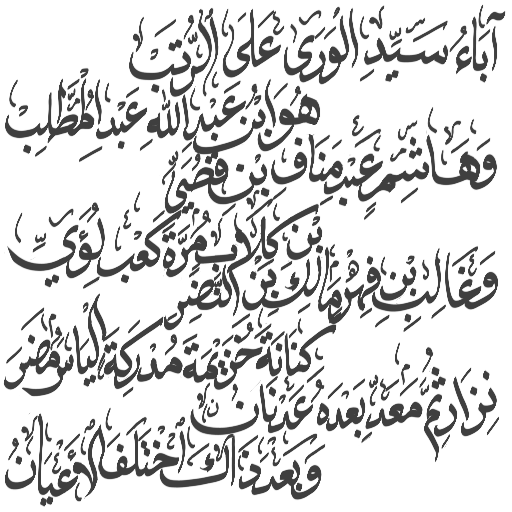 آبَاءُ سَيِّدِ الْوَرَى عَلَى الرُّتَبْ
هُوَ ابْنُ عَبْدِ اللهِ عَبْدِ الْمُطَّلِبْ
وَهَاشِمٍ عَبْدِ مَنَافِ بْنِ قُصَيِّ
بْنِ كِلَابِ مُرَّةَ كَعْبِ لُؤَيِّ
وَغَالِبِ بْنِ فِهْرِ مَالِكَ بْنِ النَّضِرِ
كِنَانَةَ خُزَيْمَةَ مُدْرِكَةَ الْيَاسِ مُضَرَ
نِزَارِ ثُمَّ مَعَدِّ بَعْدَهُ عَدْنَانُ
وَبَعْدَ ذَاكَ اخْتَلَفَ الْأَعْيَانُ